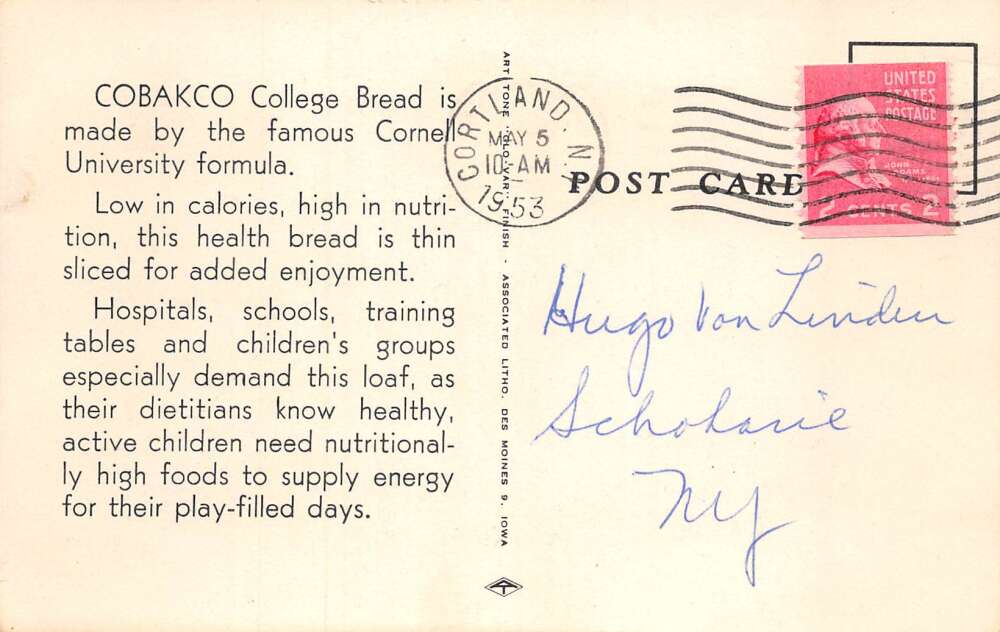 COBAKCO College Bread is
made by the famous Cornell
University formula.
Low in calories, high in nutri-
tion, this health bread is thin
sliced for added enjoyment.
Hospitals, schools, training
tables and children's groups
especially demand this loaf, as
their dietitians know healthy,
active children need nutritional-
ly high foods to supply energy
for their play-filled days.
ART TONE FINISH - ASSOCIATED LITHO. DES MOINES 9, IOWA
CORTLAND, N.Y.
MAY 5
10 AM
1953
POST CARD
UNITED
STATES
POSTAGE
JOHN
ADAMS
2 CENTS 2
Hugo Von Linden
Schoharie
NY